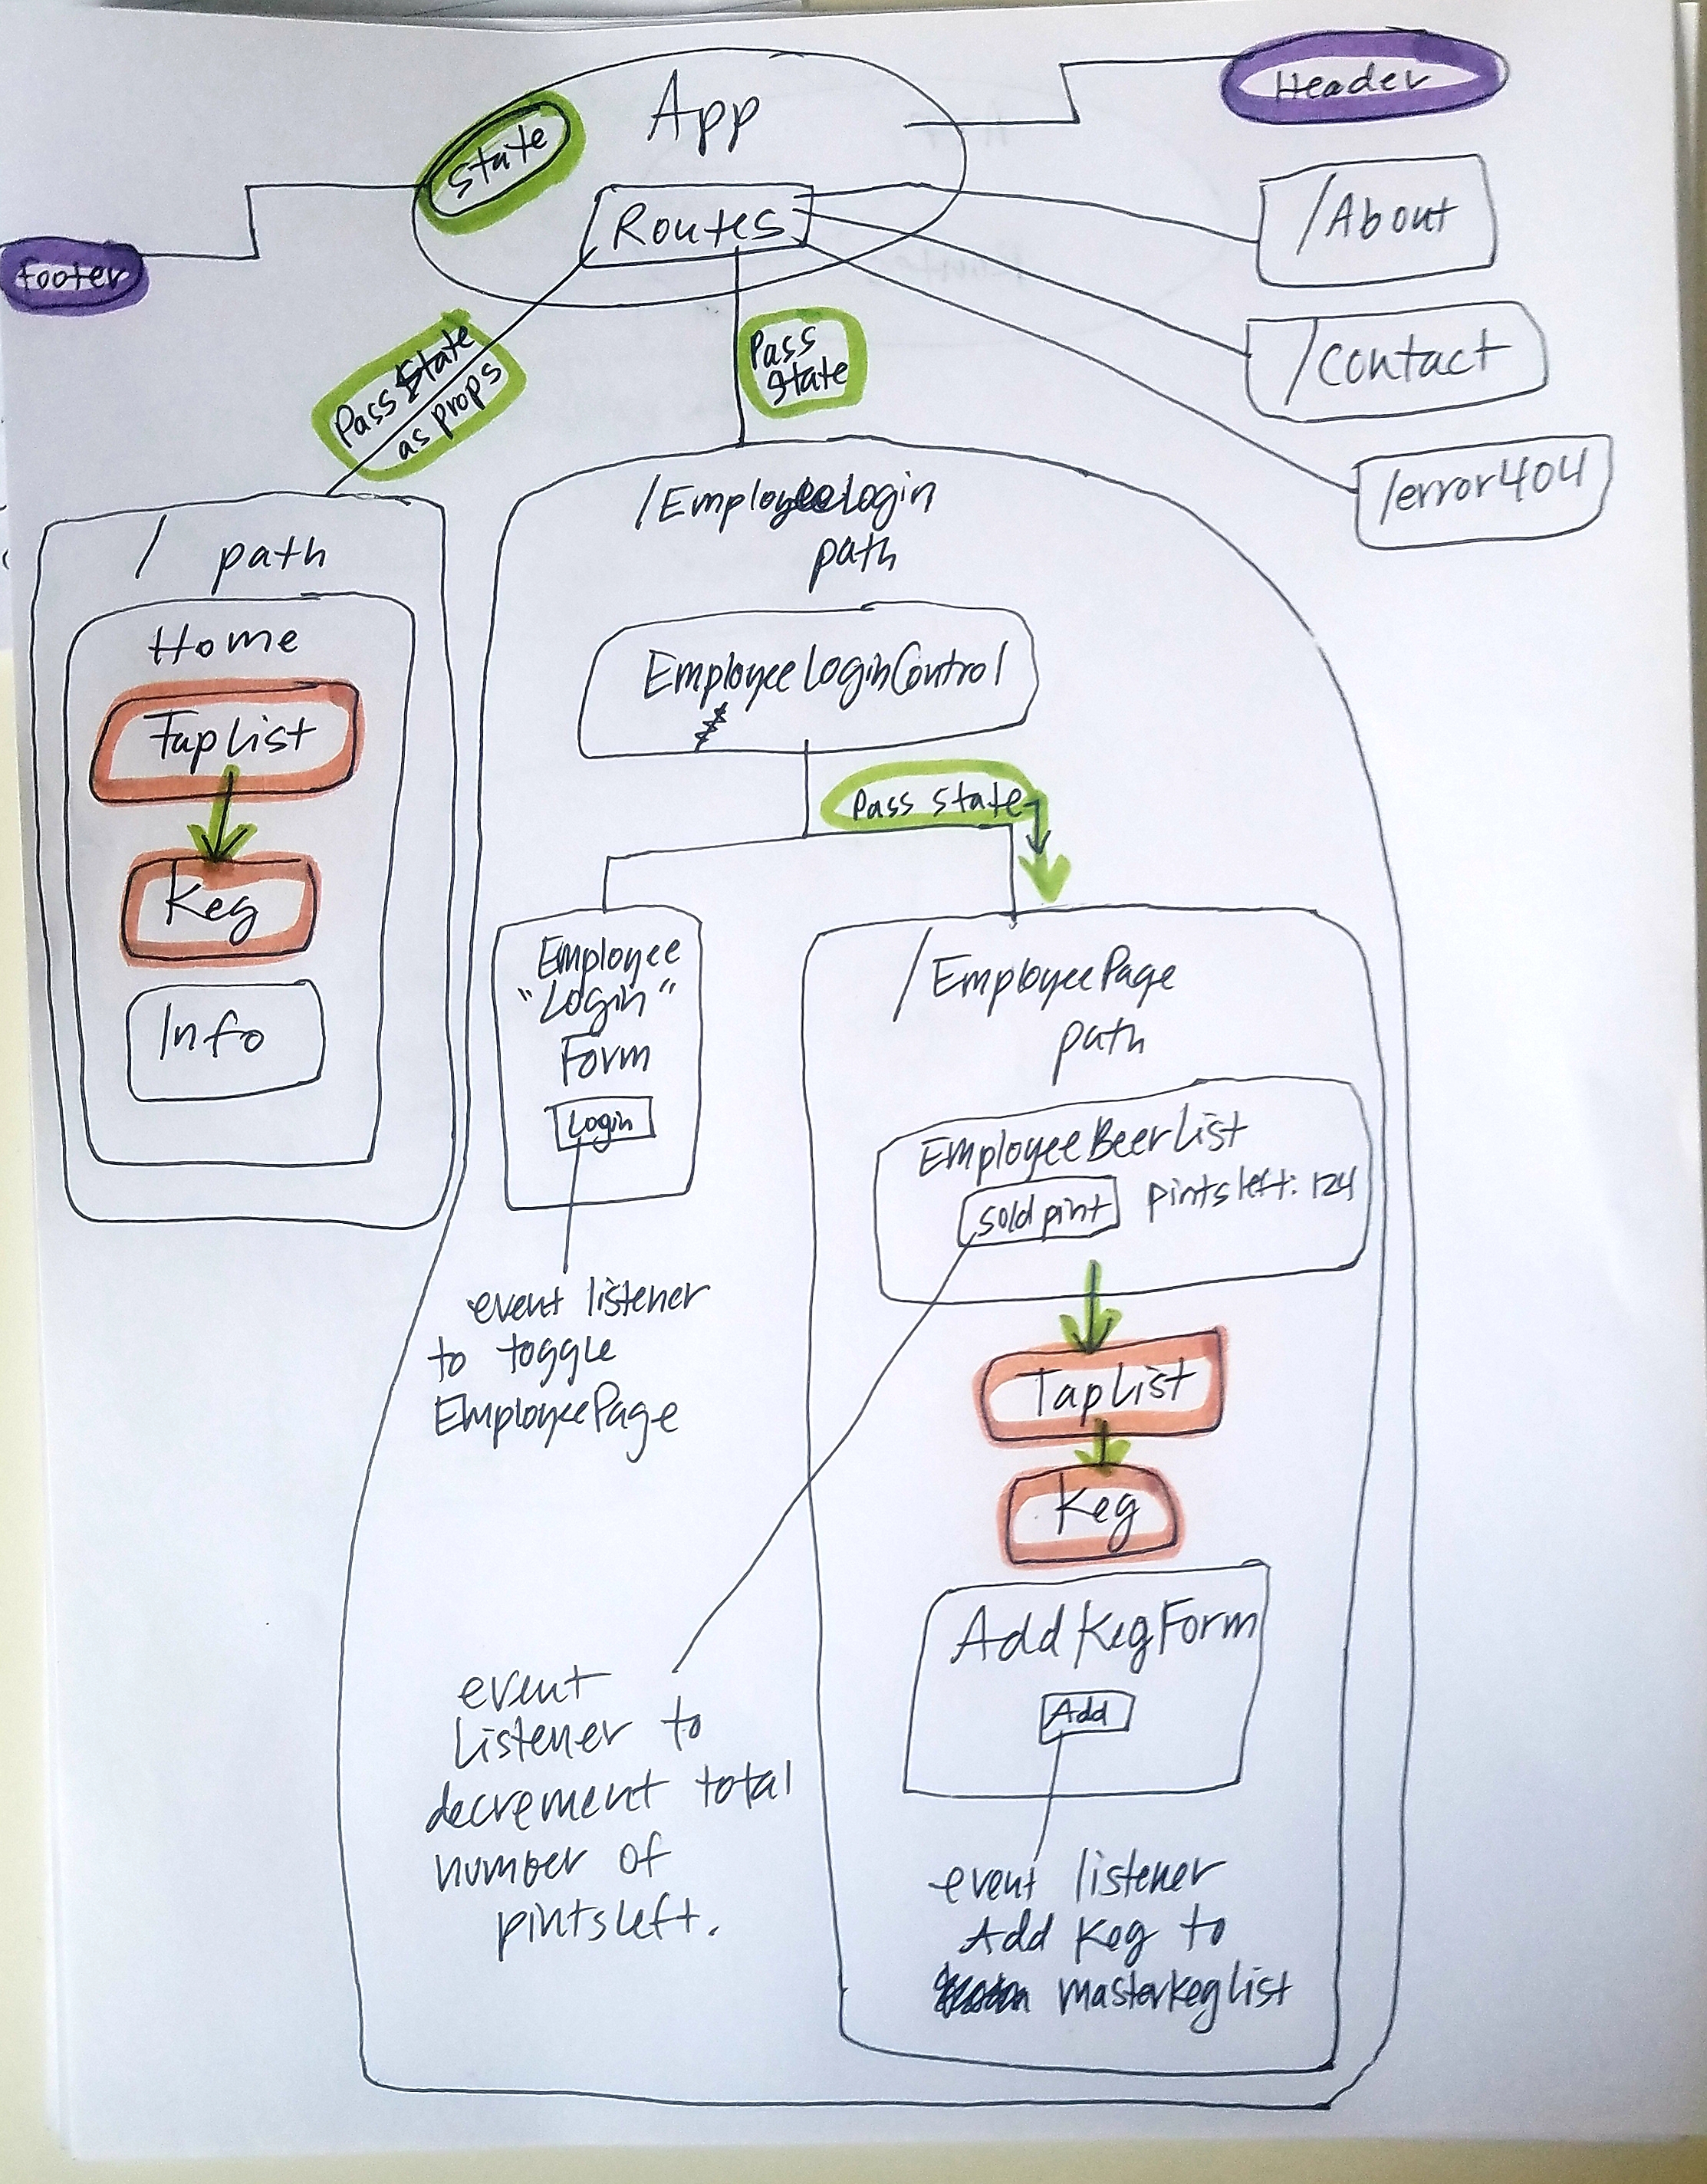 App
Header
State
Routes
/About
footer
/contact
Pass State
as props
Pass
State
/error404
/ path
Home
TapList
Keg
Info
/EmployeeLogin
path
EmployeeLoginControl
Pass State
Employee
"Login"
Form
Login
event listener
to toggle
EmployeePage
/EmployeePage
path
EmployeeBeerList
sold pint
pintsleft: 124
TapList
Keg
AddKegForm
Add
event
Listener to
decrement total
number of
pintsleft.
event listener
Add Keg to
masterkeglist